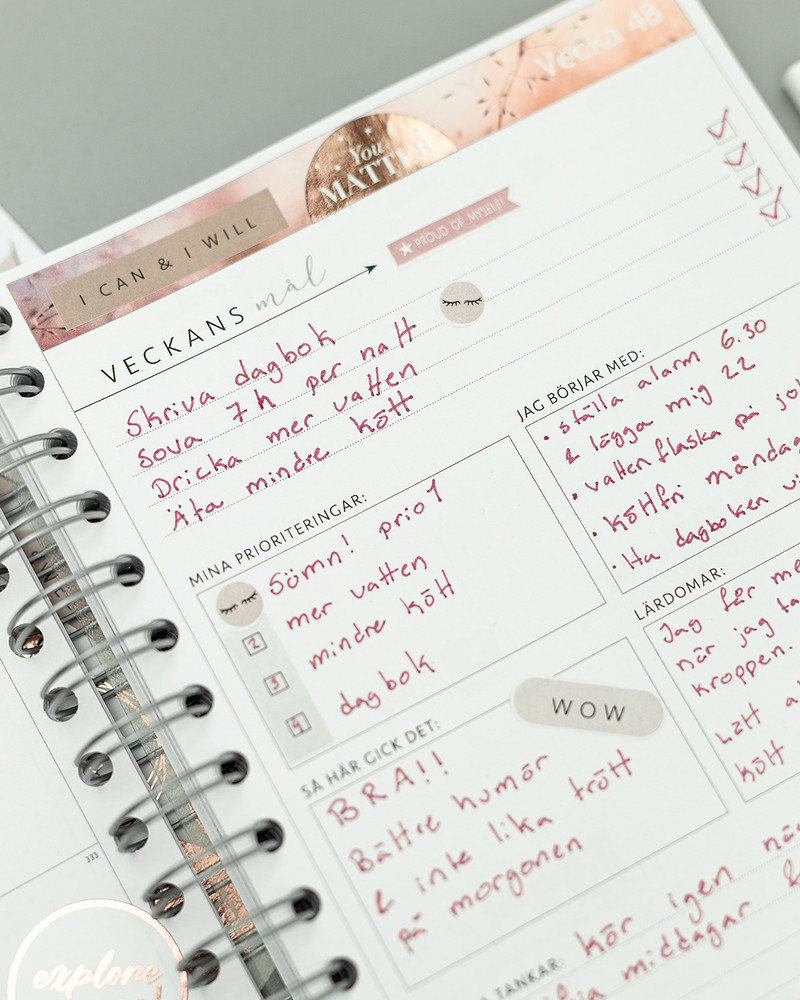 Vecka 48
You
MATTER
I CAN & I WILL
PROUD OF MYSELF!
VECKANS mål
Skriva dagbok
Sova 7h per natt
Dricka mer vatten
Äta mindre kött
JAG BÖRJAR MED:
• ställa alarm 6.30
& lägga mig 22
• vattenflaska på
• köttfri
• Ha dagboken
MINA PRIORITERINGAR:
Sömn! prio 1
2 mer vatten
3 mindre kött
4 dagbok
LÄRDOMAR:
Jag får
när jag
kroppen.
Lätt
kött
WOW
SÅ HÄR GICK DET:
BRA!!
Bättre humör
& inte lika trött
på morgonen
TANKAR: Kör igen
middagar
333
explore